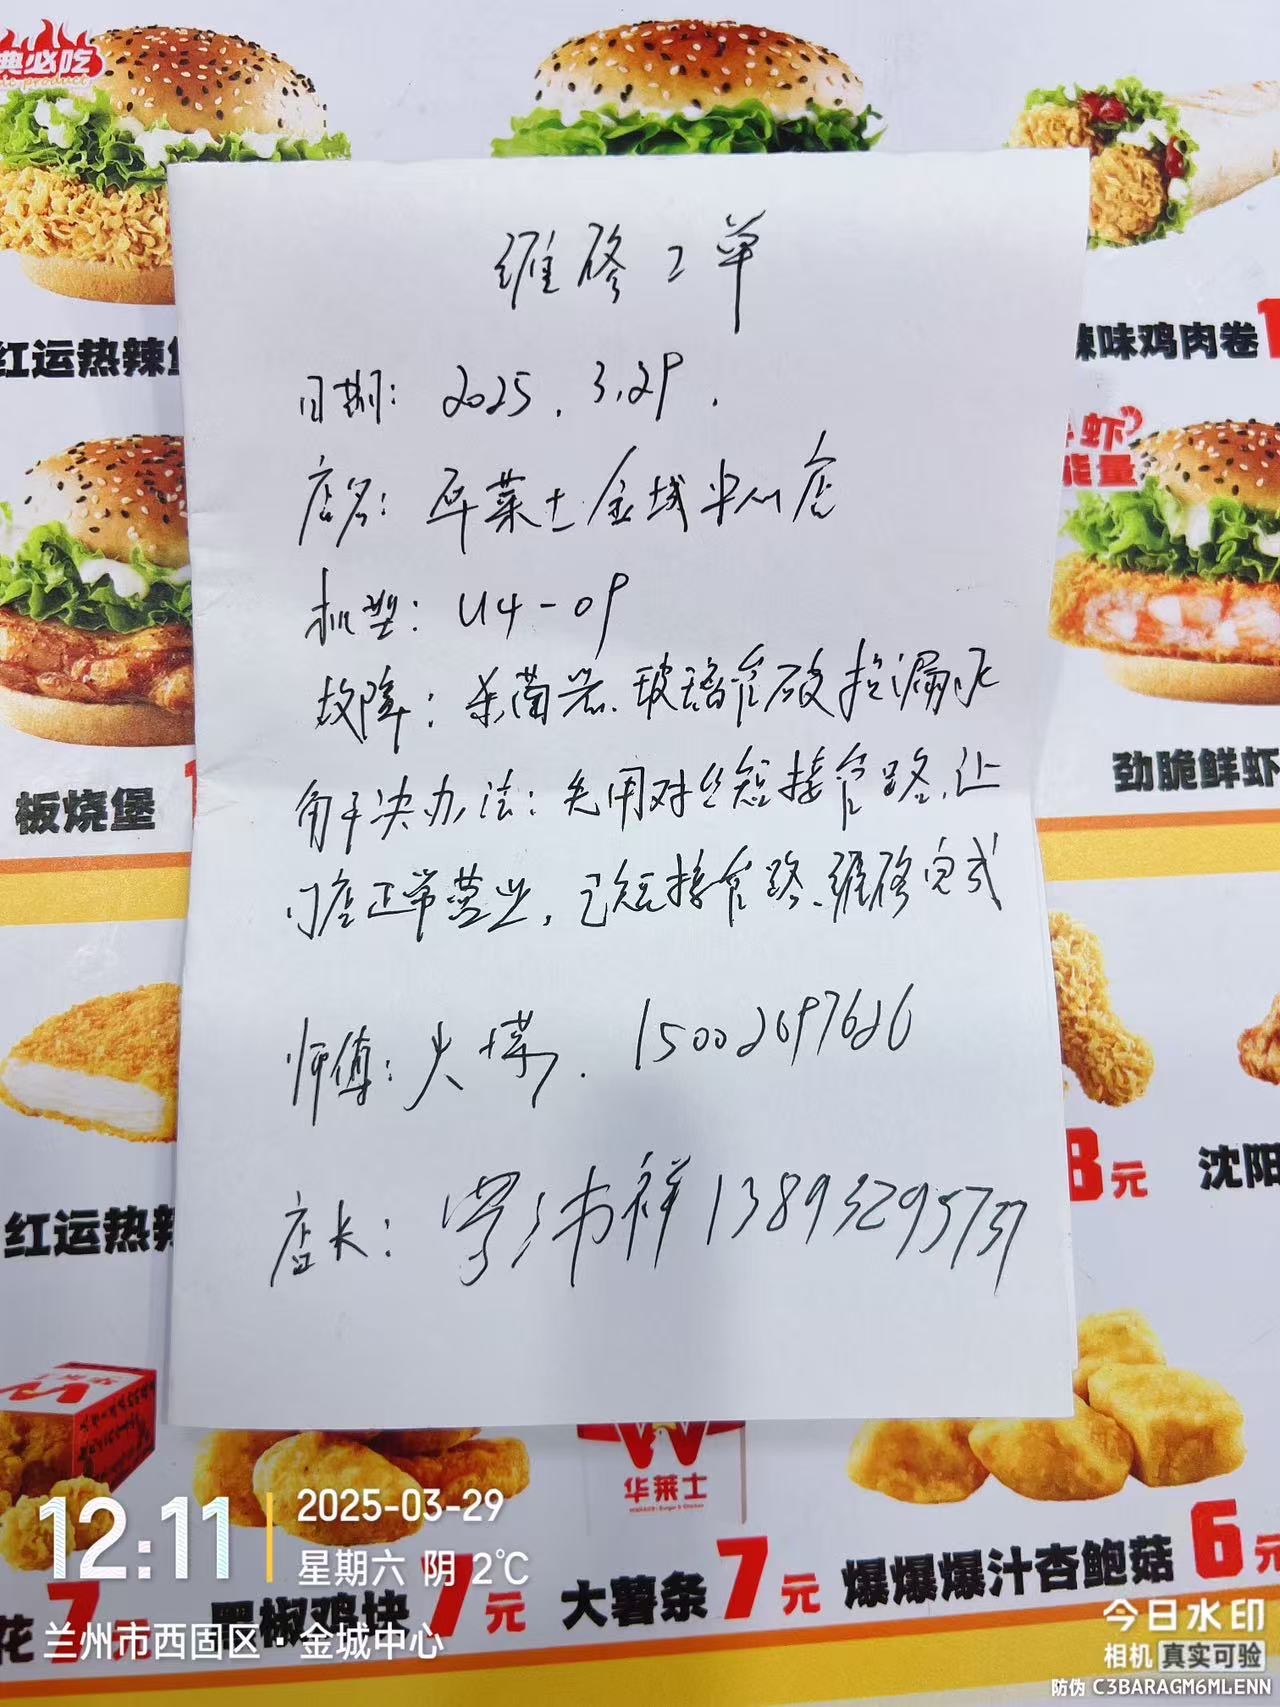 典必吃
红运热辣
辣味鸡肉卷 1
虾
能量
板烧堡
劲脆鲜虾
维修工单
日期: 2025.3.29.
店名: 华莱士金城中心店
机型: U4-09
故障: 杀菌器、玻璃管破损漏水
解决办法: 先用对丝短接管路,让
门店正常营业,已短接管路、维修完成
师傅: 火 . 15002697626
店长: 祥 13893295737
红运热辣
8元
沈阳
华莱士
花 7元
黑椒鸡块 7元
大薯条 7元
爆爆爆汁杏鲍菇 6元
12:11
2025-03-29
星期六 阴 2℃
兰州市西固区·金城中心
今日水印
相机 真实可验
防伪 C3BARAGM6MLENN